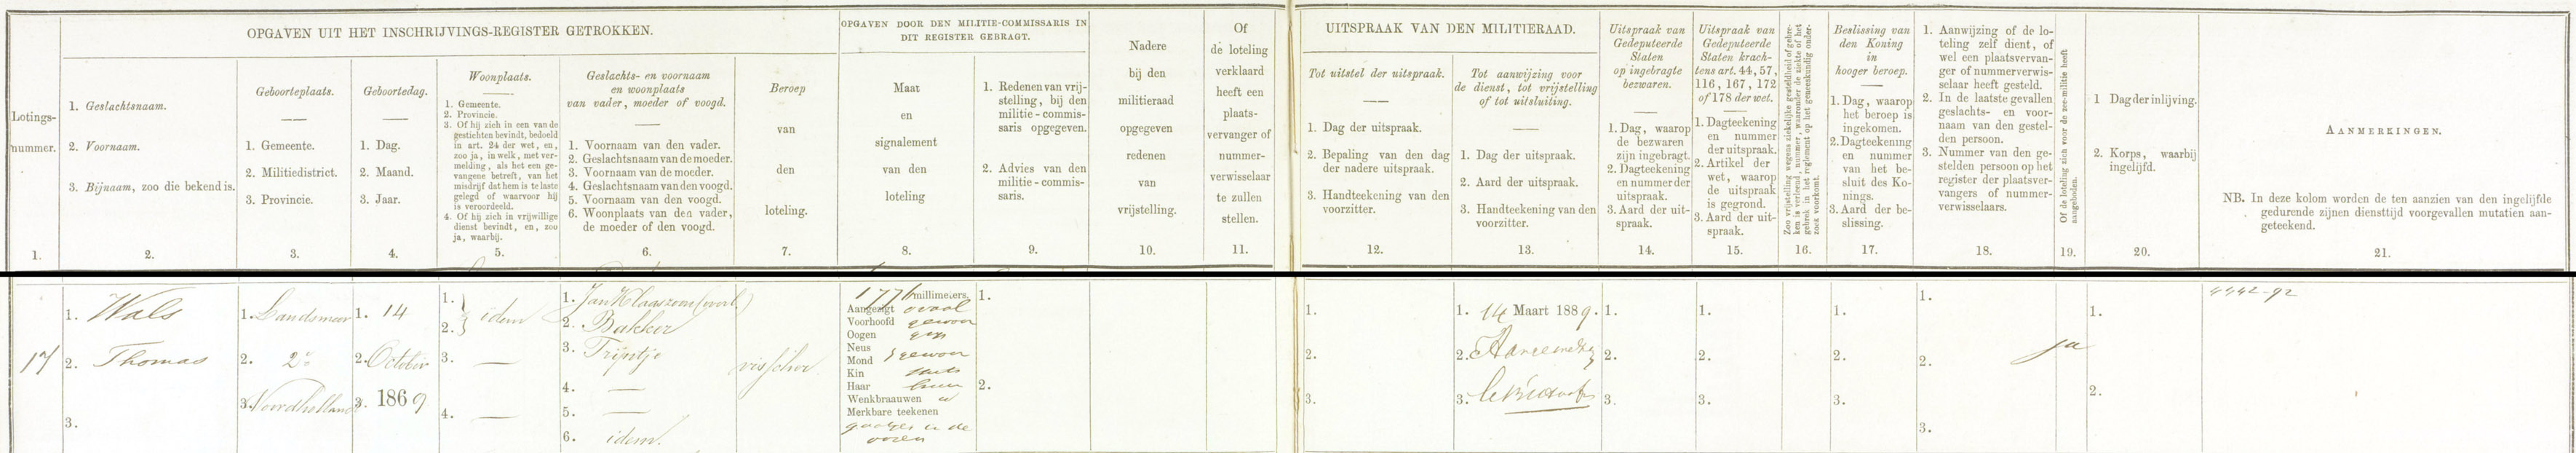 OPGAVEN UIT HET INSCHRIJVINGS-REGISTER GETROKKEN.
OPGAVEN DOOR DEN MILITIE-COMMISSARIS IN
DIT REGISTER GEBRAGT.
Lotings-
nummer.
1.
1. Geslachtsnaam.
2. Voornaam.
3. Bijnaam, zoo die bekend is.
2.
Geboorteplaats.
1. Gemeente.
2. Militiedistrict.
3. Provincie.
3.
Geboortedag.
1. Dag.
2. Maand.
3. Jaar.
4.
Woonplaats.
1. Gemeente.
2. Provincie.
3. Of hij zich in een van de
gestichten bevindt, bedoeld
in art. 24 der wet, en,
zoo ja, in welk, met ver-
melding, als het een ge-
vangene betreft, van het
misdrijf dat hem is te laste
gelegd of waarvoor hij
is veroordeeld.
4. Of hij zich in vrijwillige
dienst bevindt, en, zoo
ja, waarbij.
5.
Geslachts- en voornaam
en woonplaats
van vader, moeder of voogd.
1. Voornaam van den vader.
2. Geslachtsnaam van de moeder.
3. Voornaam van de moeder.
4. Geslachtsnaam van den voogd.
5. Voornaam van den voogd.
6. Woonplaats van den vader,
de moeder of den voogd.
6.
Beroep
van
den
loteling.
7.
Maat
en
signalement
van den
loteling
8.
1. Redenen van vrij-
stelling, bij den
militie-commis-
saris opgegeven.
2. Advies van den
militie-commis-
saris.
9.
Nadere
bij den
militieraad
opgegeven
redenen
van
vrijstelling.
10.
Of
de loteling
verklaard
heeft een
plaats-
vervanger of
nummer-
verwisselaar
te zullen
stellen.
11.
UITSPRAAK VAN DEN MILITIERAAD.
Tot uitstel der uitspraak.
1. Dag der uitspraak.
2. Bepaling van den dag
der nadere uitspraak.
3. Handteekening van den
voorzitter.
12.
Tot aanwijzing voor
de dienst, tot vrijstelling
of tot uitsluiting.
1. Dag der uitspraak.
2. Aard der uitspraak.
3. Handteekening van den
voorzitter.
13.
Uitspraak van
Gedeputeerde
Staten
op ingebragte
bezwaren.
1. Dag, waarop
de bezwaren
zijn ingebragt.
2. Dagteekening
en nummer der
uitspraak.
3. Aard der uit-
spraak.
14.
Uitspraak van
Gedeputeerde
Staten krach-
tens art. 44, 57,
116, 167, 172
of 178 der wet.
1. Dagteekening
en nummer
der uitspraak.
2. Artikel der
wet, waarop
de uitspraak
is gegrond.
3. Aard der uit-
spraak.
15.
Zoo vrijstelling wegens ziekelijke gesteldheid of gebre-
ken is verleend, nummer, waaronder de ziekte of het
gebrek in het reglement op het geneeskundig onder-
zoek voorkomt.
16.
Beslissing van
den Koning
in
hooger beroep.
1. Dag, waarop
het beroep is
ingekomen.
2. Dagteekening
en nummer
van het be-
sluit des Ko-
nings.
3. Aard der be-
slissing.
17.
1. Aanwijzing of de lo-
teling zelf dient, of
wel een plaatsvervan-
ger of nummerverwis-
selaar heeft gesteld.
2. In de laatste gevallen
geslachts- en voor-
naam van den gestel-
den persoon.
3. Nummer van den ge-
stelden persoon op het
register der plaatsver-
vangers of nummer-
verwisselaars.
18.
Of de loteling zich voor de zee-militie heeft
aangeboden.
19.
1 Dag der inlijving.
2. Korps, waarbij
ingelijfd.
20.
AANMERKINGEN.
NB. In deze kolom worden de ten aanzien van den ingelijfde
gedurende zijnen diensttijd voorgevallen mutatien aan-
geteekend.
21.
17
1. Wals
2. Thomas
3.
1. Landsmeer
2. 2e
3. Noordholland
1. 14
2. October
3. 1869
1.
2. idem
3. —
4. —
1. Jan Klaaszoon (overl.)
2. Bakker
3. Trijntje
4. —
5. —
6. idem.
visscher
1776 millimeters.
Aangezigt ovaal
Voorhoofd gewoon
Oogen grijs
Neus
Mond gewoon
Kin
Haar bruin
Wenkbraauwen id
Merkbare teekenen
gaatjes in de
ooren
1.
2.
1.
2.
3.
1. 14 Maart 1889.
2. Aangewezen
3.
1.
2.
3.
1.
2.
3.
1.
2.
3.
1.
2.
3.
ja
1.
2.
4442-92